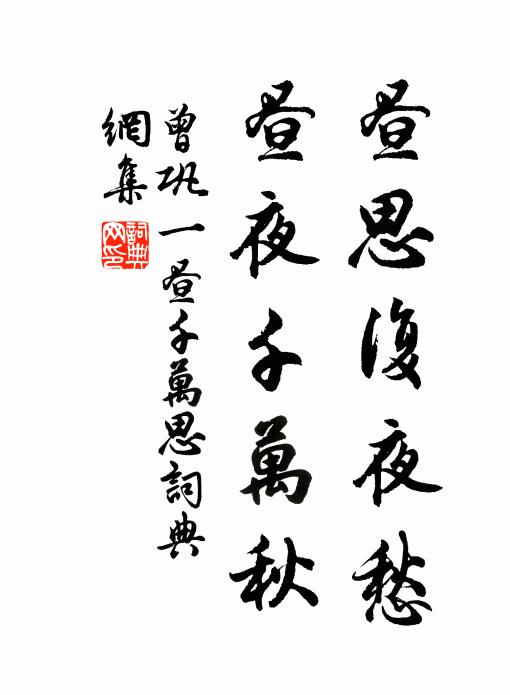 昼思復夜愁
昼夜千萬秋
曾巩一昼千萬思詞典
網集
詞典
网印